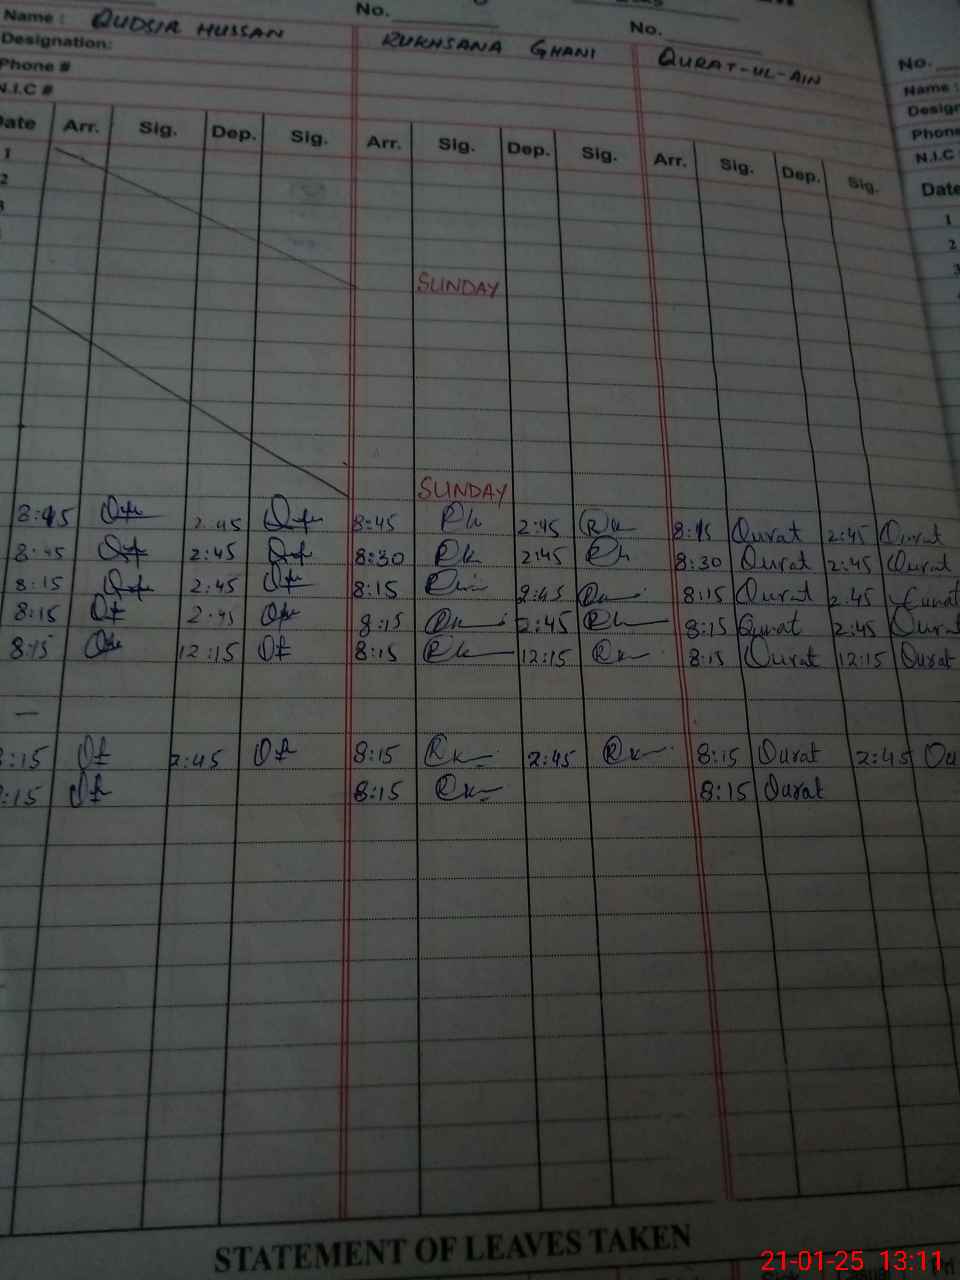 Name : QUDSIA HUSSAN No. RUKHSANA GHANI No. QURAT-UL-AIN No.
Designation: Name :
Phone # Desig
N.I.C # Phone
N.I.C
Date Arr. Sig. Dep. Sig. Arr. Sig. Dep. Sig. Arr. Sig. Dep. Sig. Date
1 1
2 2
3 3
SUNDAY
SUNDAY
8:45 2:45 8:45 Rk 2:45 Rk 8:45 Qurat 2:45 Qurat
8:45 2:45 8:30 Rk 2:45 Rk 8:30 Qurat 2:45 Qurat
8:15 2:45 8:15 2:45 8:15 Qurat 2:45 Qurat
8:15 2:45 8:15 Rk 2:45 Rk 8:15 Qurat 2:45 Qurat
8:15 12:15 8:15 Rk 12:15 Rk 8:15 Qurat 12:15 Qurat
—
8:15 2:45 8:15 Rk 2:45 Rk 8:15 Qurat 2:45 Qu
8:15 8:15 Rk 8:15 Qurat
STATEMENT OF LEAVES TAKEN
21-01-25 13:11